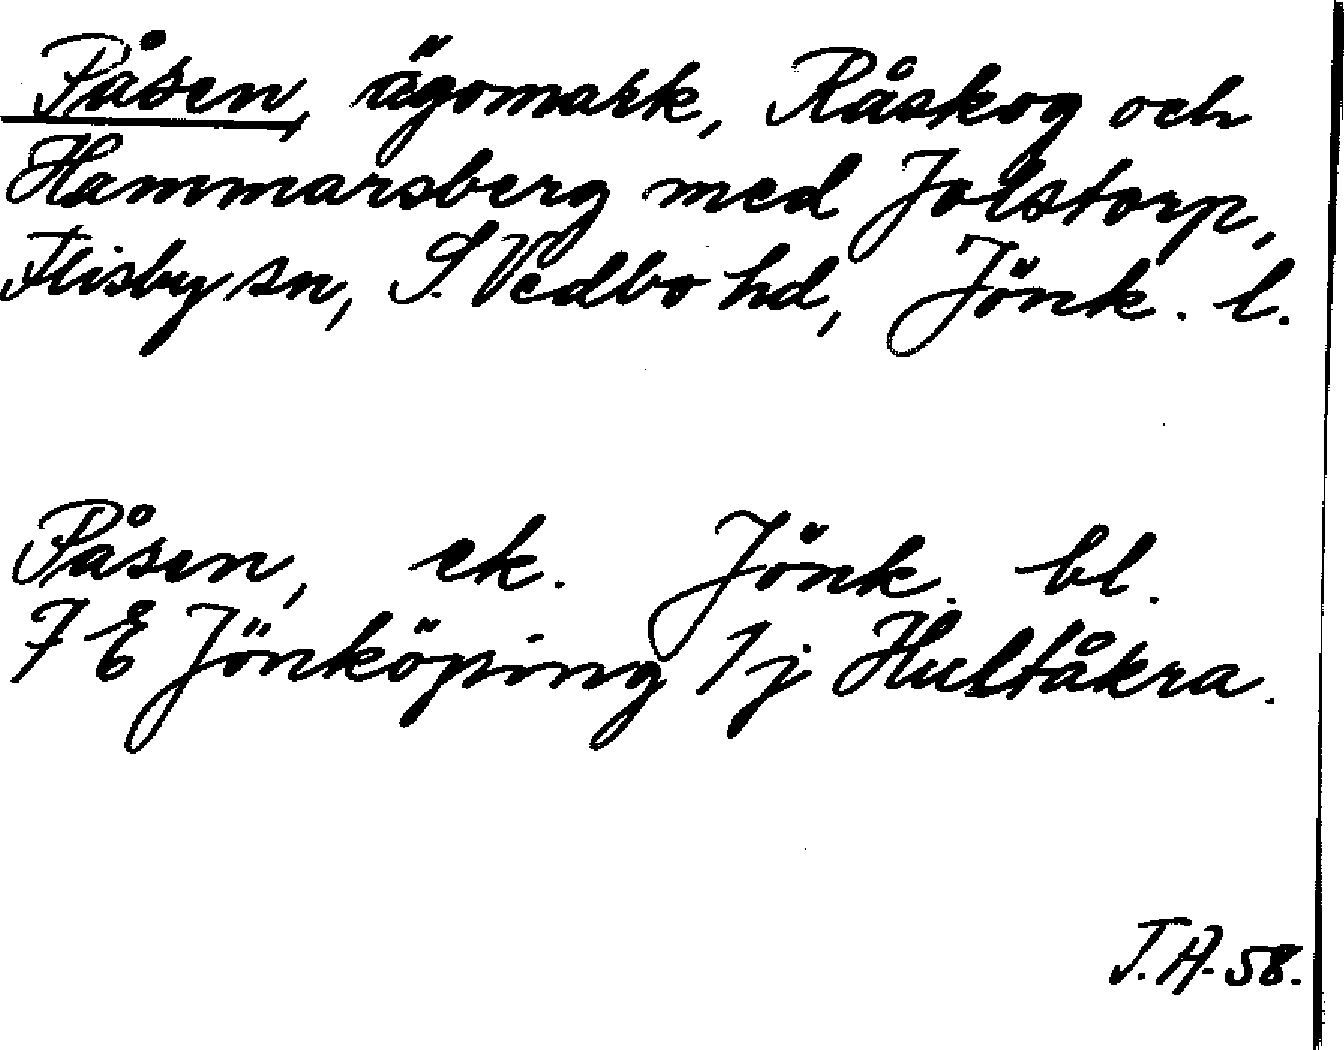 Påsen, ägomark, Råskog och
Hammarsberg med Jolstorp,
Flisby sn, S. Vedbo hd, Jönk. l.
Påsen, ek. Jönk. bl.
7 E Jönköping 1j Hultåkra.
J.A. 58.